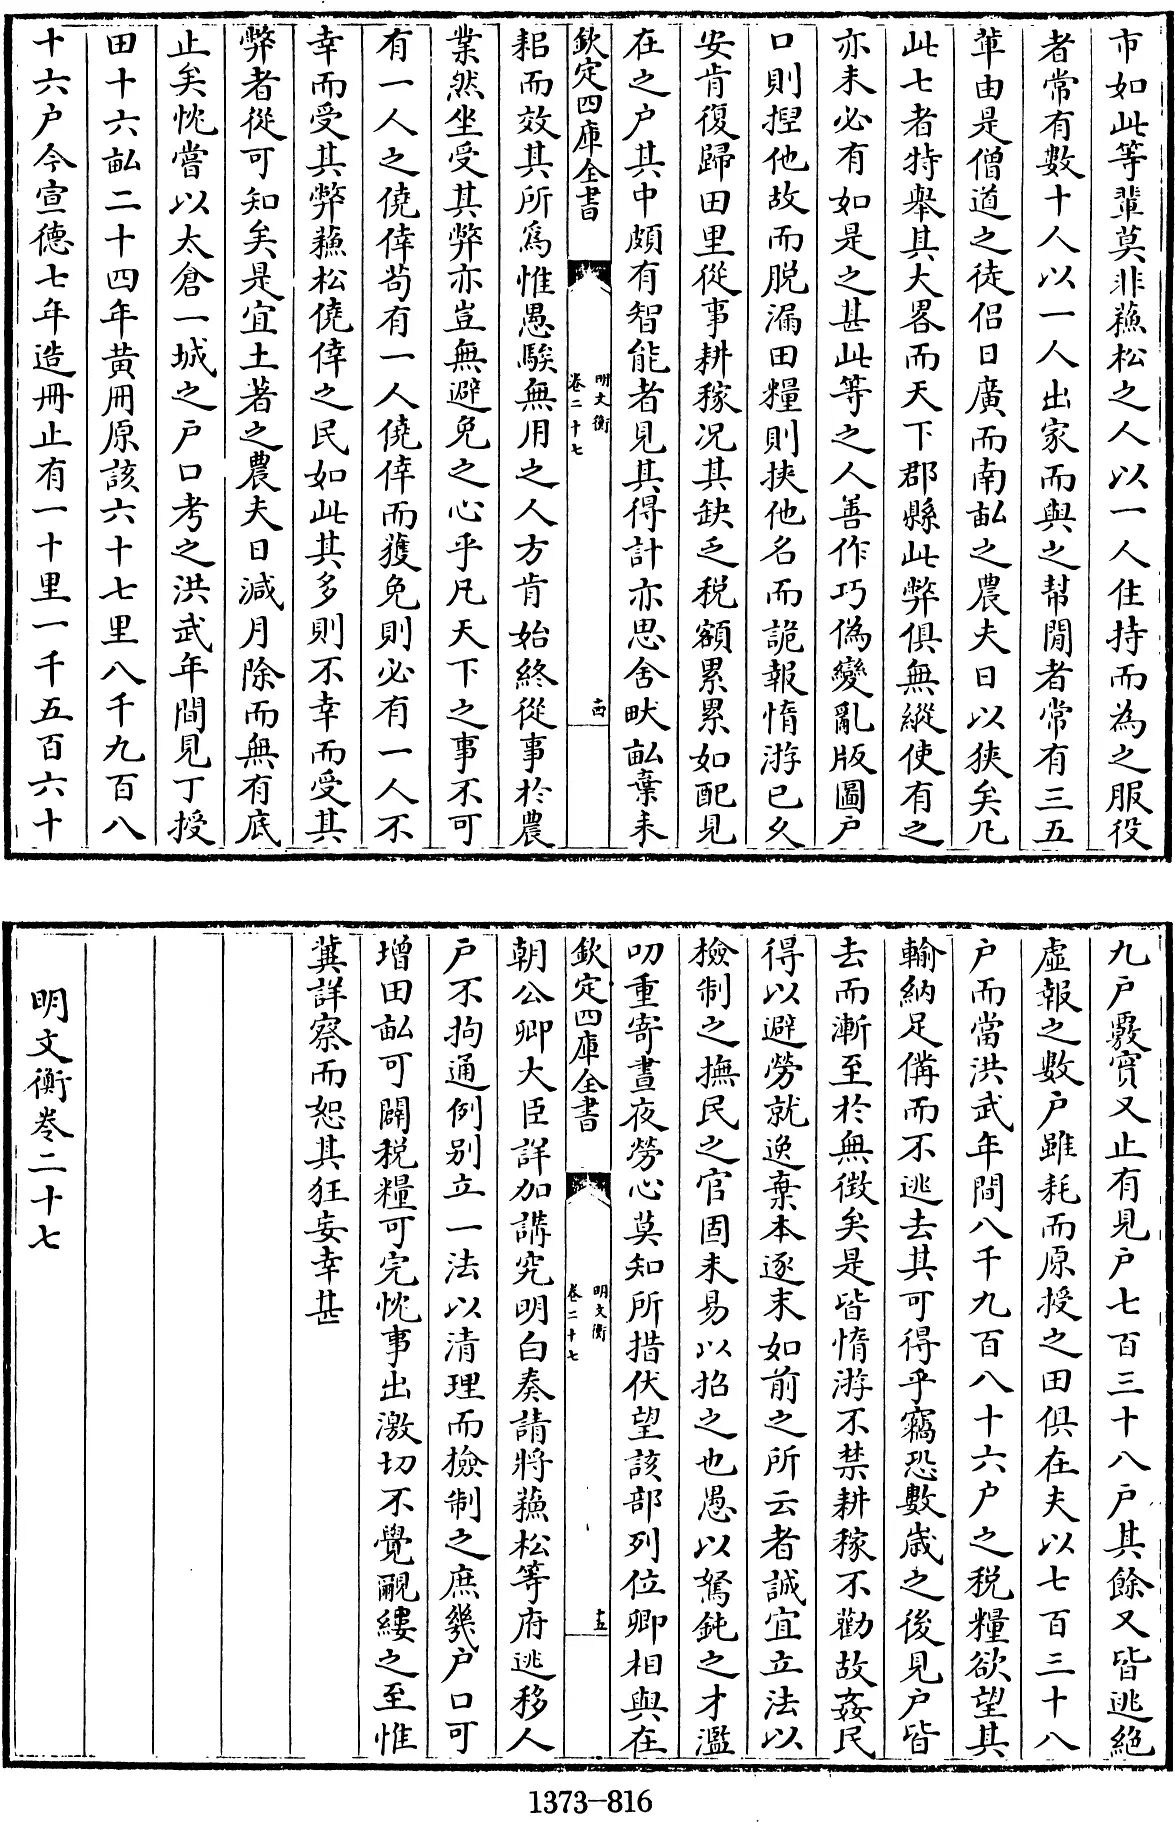 市如此等輩莫非蘓松之人以一人住持而為之服役
者常有數十人以一人出家而與之幇閒者常有三五
軰由是僧道之徒侣日廣而南畝之農夫日以狹矣凡
此七者特舉其大畧而天下郡縣此弊俱無縱使有之
亦未必有如是之甚此等之人善作巧偽變亂版圖户
口則揑他故而脱漏田糧則挾他名而詭報惰游已久
安肯復歸田里從事耕稼况其缺乏税額累累如配見
在之户其中頗有智能者見其得計亦思舍畎畝棄耒
欽定四庫全書
明文衡
卷二十七
十四
耜而效其所為惟愚騃無用之人方肯始終從事於農
業然坐受其弊亦豈無避免之心乎凡天下之事不可
有一人之僥倖茍有一人僥倖而獲免則必有一人不
幸而受其弊蘓松僥倖之民如此其多則不幸而受其
弊者從可知矣是宜土著之農夫日減月除而無有底
止矣忱嘗以太倉一城之户口考之洪武年間見丁授
田十六畝二十四年黄冊原該六十七里八千九百八
十六户今宣德七年造冊止有一十里一千五百六十
九户覈實又止有見户七百三十八户其餘又皆逃絶
虚報之數户雖耗而原授之田俱在夫以七百三十八
户而當洪武年間八千九百八十六户之税糧欲望其
輸納足備而不逃去其可得乎竊恐數嵗之後見户皆
去而漸至於無徴矣是皆惰游不禁耕稼不勸故姦民
得以避勞就逸棄本逐末如前之所云者誠宜立法以
檢制之撫民之官固未易以招之也愚以駑鈍之才濫
叨重寄晝夜勞心莫知所措伏望該部列位卿相與在
欽定四庫全書
明文衡
卷二十七
十五
朝公卿大臣詳加講究明白奏請將蘓松等府逃移人
户不拘通例别立一法以清理而檢制之庶㡬户口可
增田畝可闢税糧可完忱事出激切不覺覼縷之至惟
冀詳察而恕其狂妄幸甚
明文衡卷二十七
1373-816